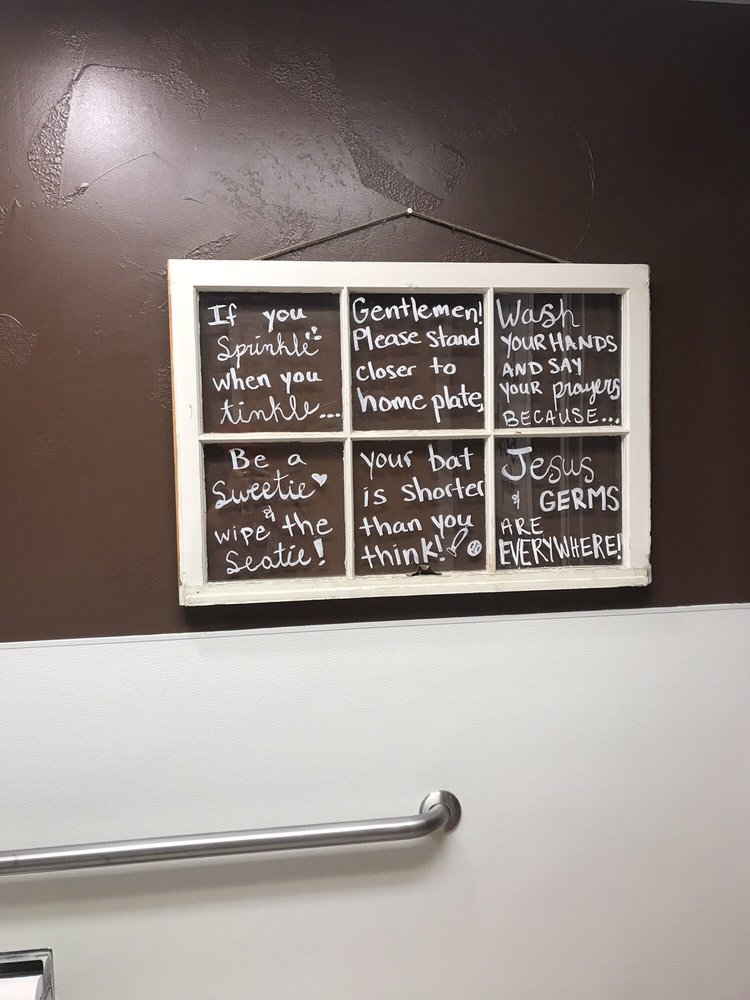 If you
Sprinkle
when you
tinkle...
Be a
Sweetie
& wipe the
Seatie!
Gentlemen!
Please stand
closer to
home plate,
your bat
is shorter
than you
think!
Wash
YOUR HANDS
AND SAY
YOUR prayers
BECAUSE...
Jesus
& GERMS
ARE
EVERYWHERE!